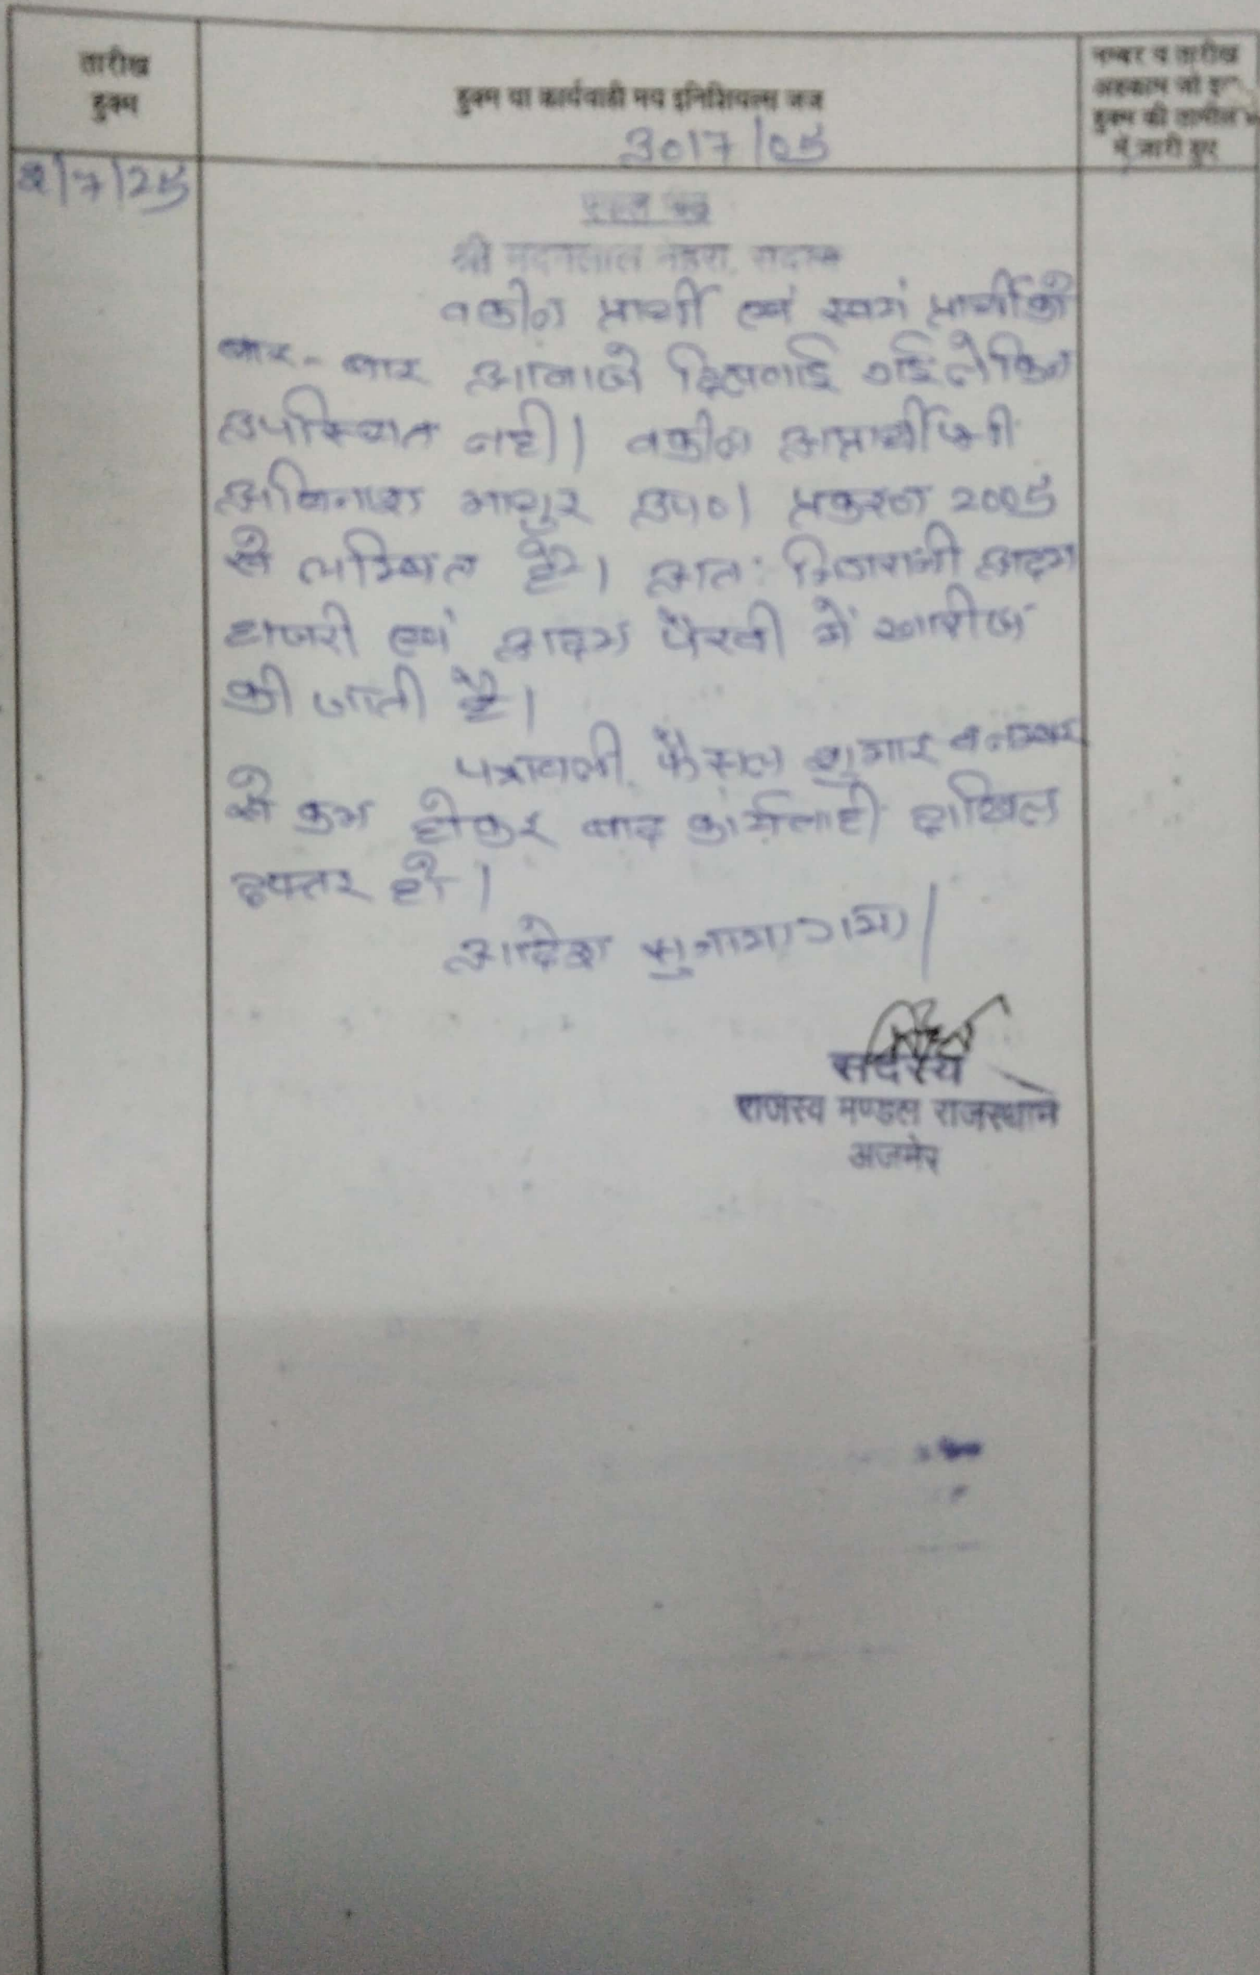 तारीख
हुक्म
हुक्म या कार्यवाही मय इनिशियल्स जज
नम्बर व तारीख
अहकाम जो इस
हुक्म की तामील
में जारी हुए
3017/05
2/7/25
एकल पीठ
श्री मदनलाल नेहरा, सदस्य
वकील प्रार्थी एवं स्वयं प्रार्थी को
बार-बार आवाजे दिलवाई गई लेकिन
उपस्थित नहीं। वकील अप्रार्थी श्री
अविनाश माथुर उप०। प्रकरण 2005
से लम्बित है। अतः निगरानी अदम
हाजरी एवं अदम पैरवी में खारीज
की जाती है।
पत्रावली फैसल शुमार व नम्बर
से कम होकर बाद कार्यवाही दाखिल
दफ्तर हो।
आदेश सुनाया गया।
सदस्य
राजस्व मण्डल राजस्थान
अजमेर